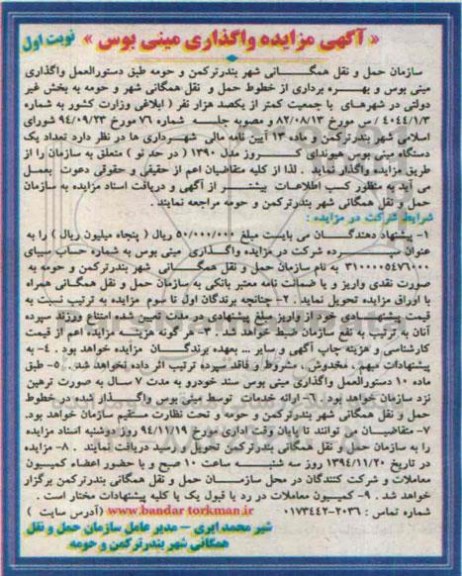 « آگهی مزایده واگذاری مینی بوس » نوبت اول
سازمان حمل و نقل همگانی شهر بندرترکمن و حومه طبق دستورالعمل واگذاری
مینی بوس و بهره برداری از خطوط حمل و نقل همگانی شهر و حومه به بخش غیر
دولتی در شهرهای با جمعیت کمتر از یکصد هزار نفر ( ابلاغی وزارت کشور به شماره
۴۰۴۴/۱/۳ / س مورخ ۸۲/۰۸/۱۳ و مصوبه جلسه شماره ۷۶ مورخ ۹۴/۰۹/۲۳ شورای
اسلامی شهر بندرترکمن و ماده ۱۳ آیین نامه مالی شهرداری ها در نظر دارد تعداد یک
دستگاه مینی بوس هیوندای کروز مدل ۱۳۹۰ ( در حد نو ) متعلق به سازمان را از
طریق مزایده واگذار نماید . لذا از کلیه متقاضیان اعم از حقیقی و حقوقی دعوت بعمل
می آید به منظور کسب اطلاعات بیشتر از آگهی و دریافت اسناد مزایده به سازمان
حمل و نقل همگانی شهر بندرترکمن و حومه مراجعه نمایند .
شرایط شرکت در مزایده :
۱- پیشنهاد دهندگان می بایست مبلغ ۵۰/۰۰۰/۰۰۰ ریال ( پنجاه میلیون ریال ) را به
عنوان سپرده شرکت در مزایده واگذاری مینی بوس به شماره حساب سیبای
۳۱۰۰۰۰۵۴۷۶۰۰۰ به نام سازمان حمل و نقل همگانی شهر بندرترکمن و حومه به
صورت نقدی واریز و یا ضمانت نامه معتبر بانکی به سازمان حمل و نقل همگانی همراه
با اوراق مزایده تحویل نماید . ۲- چنانچه برندگان اول تا سوم مزایده به ترتیب نسبت به
قیمت پیشنهادی خود از واریز مبلغ پیشنهادی در مدت تعیین شده امتناع ورزند سپرده
آنان به ترتیب به نفع سازمان ضبط خواهد شد . ۳- هر گونه هزینه مزایده اعم از قیمت
کارشناسی و هزینه چاپ آگهی و سایر ... بعهده برندگان مزایده خواهد بود . ۴- به
پیشنهادات مبهم ، مخدوش ، مشروط و فاقد سپرده ترتیب اثر داده نخواهد شد . ۵- طبق
ماده ۱۰ دستورالعمل واگذاری مینی بوس سند خودرو به مدت ۷ سال به صورت ترهین
نزد سازمان خواهد بود . ۶- ارائه خدمات توسط مینی بوس واگذار شده در خطوط
حمل و نقل همگانی شهر بندرترکمن و حومه و تحت نظارت مستقیم سازمان خواهد بود.
۷- متقاضیان می توانند تا پایان وقت اداری مورخ ۹۴/۱۱/۱۹ روز دوشنبه اسناد مزایده
را به سازمان حمل و نقل همگانی بندرترکمن تحویل و رسید دریافت نمایند . ۸- مزایده
در تاریخ ۱۳۹۴/۱۱/۲۰ روز سه شنبه ساعت ۱۰ صبح و با حضور اعضاء کمیسیون
معاملات و شرکت کنندگان در محل سازمان حمل و نقل همگانی بندرترکمن برگزار
خواهد شد . ۹- کمیسیون معاملات در رد یا قبول یک یا کلیه پیشنهادات مختار است .
شماره تماس : ۲۰۳۶-۰۱۷۳۴۴۲ www.bandar torkman.ir (آدرس سایت )
شیر محمد ایری – مدیر عامل سازمان حمل و نقل
همگانی شهر بندرترکمن و حومه